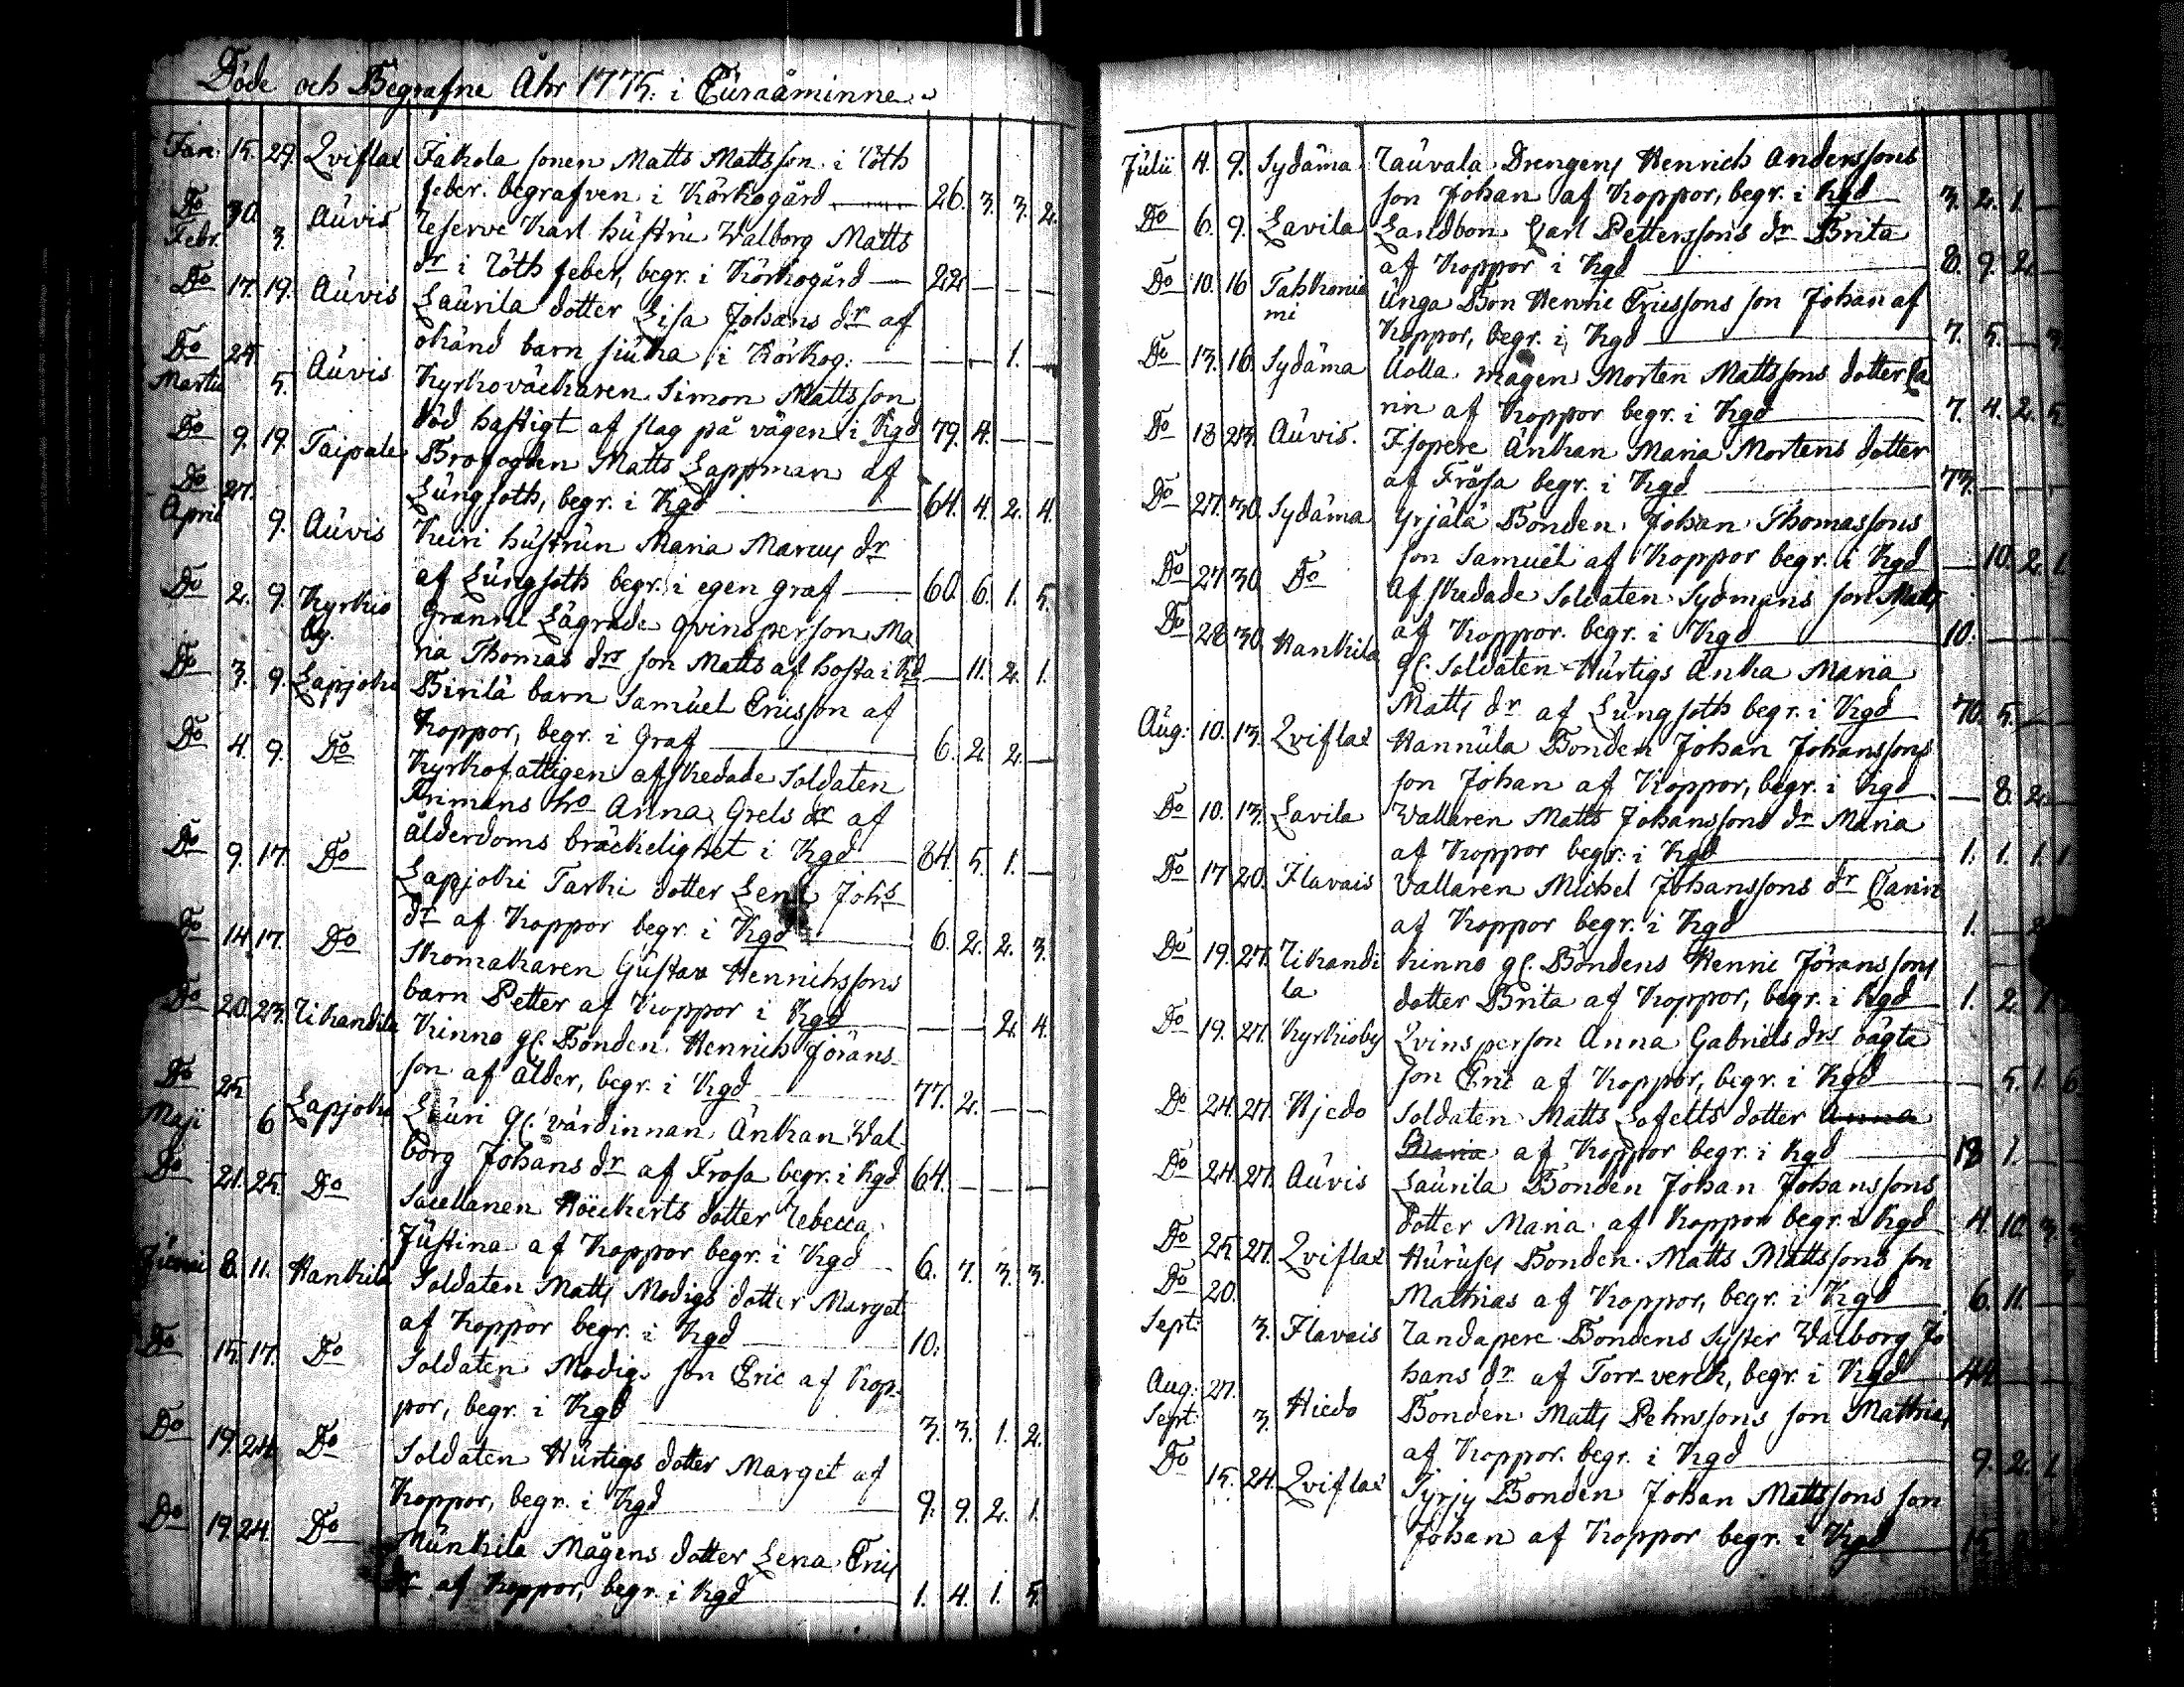 Döde och Begrafne Åhr 1775. i Euraåminne.
Jan: 15. 29. Lviflax Jakola sonen Matts Mattsson i röth
feber. begrafven i Körkogård 26. 3. 3. 2.
Do 30. Febr. 3. Auvis Reserve Karl hustru Walborg Matts
dr i röth feber, begr. i Körkogård — 22 — — —
Do 17. 19. Auvis Laurila dotter Lisa Johans dr af
okänd barn siuka i Körkog: — — — 1. —
Do 25. Martii 5. Auvis Kyrkoväckaren Simon Mattsson
död hastigt af slag på vägen i Kgd 79. 4. — —
Do 9. 19. Taipale Brofogden Matts Lappman af
Lungsoth, begr. i Kgd 64. 4. 2. 4.
Do 27. April 9. Auvis Keiri hustrun Maria Marcus dr
af Lungsoth begr. i egen graf — 60. 6. 1. 5.
Do 2. 9. Kyrkio by. Grannl Lägrade qvinsperson Ma
ria Thomas drs son Matts af hosta i Kd — 11. 2. 1.
Do 3. 9. Lapjoki Birilä barn Samuel Ericsson af
Koppor, begr. i Graf 6. 2. 2. —
Do 4. 9. Do Kyrkofattigen afskedade Soldaten
Primans ho Anna Grels dr af
ålderdoms bräckelighet i Kgd 84. 5. 1. —
Do 9. 17. Do Lapjoki Tarki dotter Lena Johs
dr af Koppor begr. i Kgd 6. 2. 2. 3.
Do 14. 17. Do Skomakaren Gustav Henrichssons
barn Petter af Koppor i Kgd — — 2. 4.
Do 20. 23. Rikandila Kinno gl. Bonden Henrich Jörans-
son af ålder, begr. i Kgd 77. 2. — —
Do 25. Maji 6 Lapjoki Läuri gl. värdinnan Änkan Wal-
borg Johans dr af Frosa begr. i Kgd 64. — — —
Do 21. 25. Do Sacellanen Höckerts dotter Rebecca
Justina af Koppor begr. i Kgd 6. 7. 3. 3.
Junii 8. 11. Hankila Soldaten Matts Modigs dotter Marget
af Koppor begr. i Kgd 10.
Do 15. 17. Do Soldaten Modigs son Eric af Kop-
por, begr. i Kgd 3. 3. 1. 2.
Do 19. 24. Do Soldaten Hurtigs dotter Marget af
Koppor, begr. i Kgd 9. 9. 2. 1.
Do 19. 24. Do Munkila Mågens dotter Lena Erics
dr af Koppor, begr. i Kgd 1. 4. 1. 5.
Julii 4. 9. Sydäma Rauvala Drengens Henrich Anderssons
son Johan af Koppor, begr. i Kgd 3. 2. 1. —
Do 6. 9. Lavila Landbon Carl Petterssons dr Brita
af Koppor i Kgd 8. 9. 2. —
Do 10. 16 Tahkonie mi Unga Bon Henric Ericssons son Johan af
Koppor, begr. i Kgd 7. 5. — 3.
Do 13. 16. Sydäma Uolla mågen Morten Mattssons dotter Ca
rin af Koppor begr. i Kgd 7. 4. 2. 5.
Do 18 23. Auvis. Isopere Änkan Maria Mortens dotter
af Fråsa begr. i Kgd 73. — — —
Do 27. 30. Sydäma Yrjälä Bonden Johan Thomassons
son Samuel af Koppor begr. i Kgd — 10. 2. 1.
Do 27 30 Do Afskedade Soldaten Sydmans son Matts
af Koppor. begr. i Kgd 10.
Do 28 30. Hankila gl. Soldaten Hurtigs Änka Maria
Matts dr af Lungsoth begr. i Kgd 70. 5. —
Aug: 10. 13. Lviflax Hannula Bonden Johan Johanssons
son Johan af Koppor, begr. i Kgd — 8. 2. —
Do 10. 13. Lavila Wallaren Matts Johanssons dr Maria
af Koppor begr. i Kgd 1. 1. 1. 1.
Do 17 20. Ilavais Vallaren Michel Johanssons dr Carin
af Koppor begr. i Kgd 1. — 2
Do 19. 27. Rikandi la Kinno gl. Bondens Henric Jöranssons
dotter Brita af Koppor, begr. i Kgd 1. 2. 1.
Do 19. 27. Kyrkioby Qvinsperson Anna Gabriels drs oägta
son Eric af Koppor, begr. i Kgd — 5. 1. 6.
Do 24. 27. Hjedo Soldaten Matts Lofelts dotter Anna
Maria af Koppor begr. i Kgd 13 1. —
Do 24. 27. Auvis Laurila Bonden Johan Johanssons
dotter Maria af Koppor begr. i Kgd 4. 10. 3. 3
Do 25 27. Lviflax Huruses Bonden Matts Mattssons son
Mathias af Koppor, begr. i Kgd 6. 11. —
Do 20. Sept: 3. Ilavais Randapere Bondens syster Walborg Jo
hans dr af Torr verck, begr. i Kgd 44
Aug: 27. Sept: 3. Hiedo Bonden Matts Pehrssons son Mathias
af Koppor. begr. i Kgd 9. 2. 1.
Do 15. 24. Lviflax Tyrjy Bonden Johan Mattssons son
Johan af Koppor begr. i Kgd 15